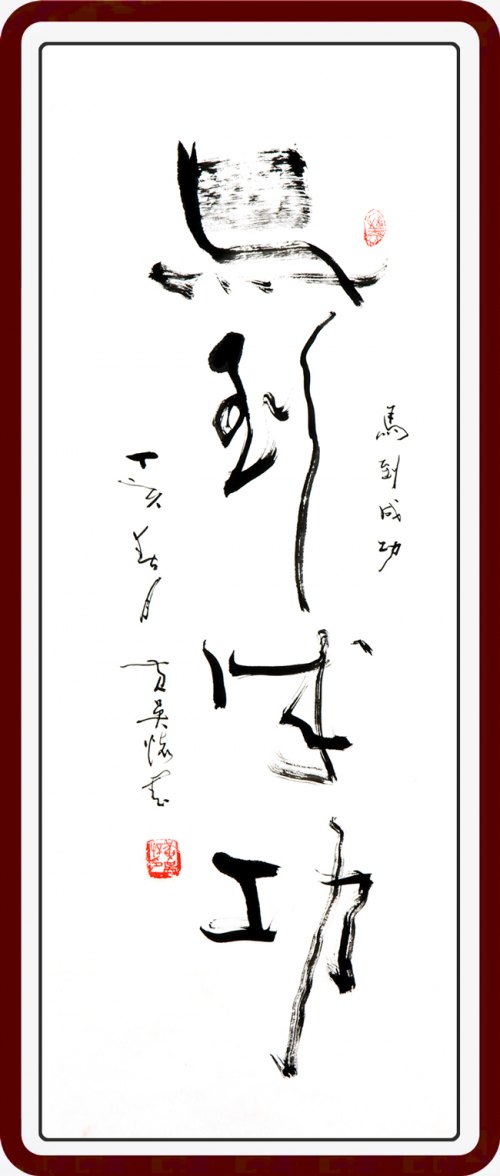 馬到成功
馬到成功
丁亥春月 吳懷書